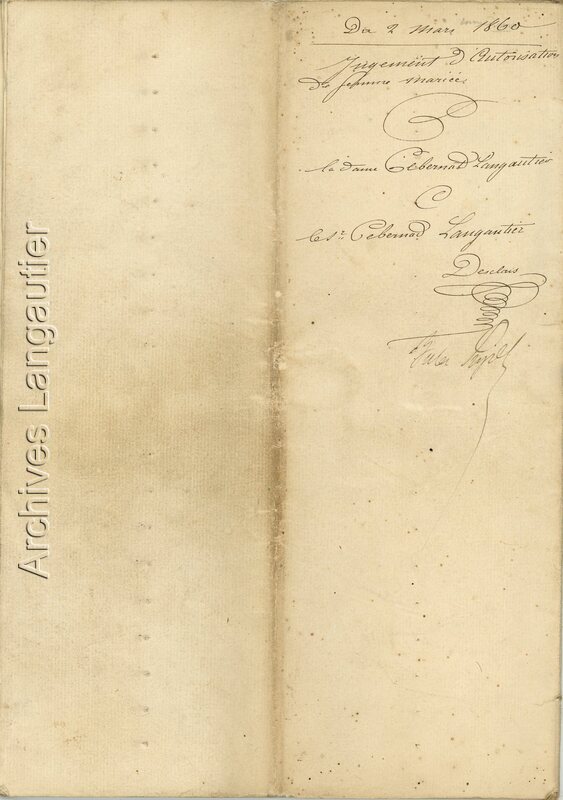 Archives Langautier
Du 2 mars 1860
Jugement d'Autorisation
de femme mariée
la dame Cébernad Langautier
C
le sr Cebernad Langautier
Desclais
Jules